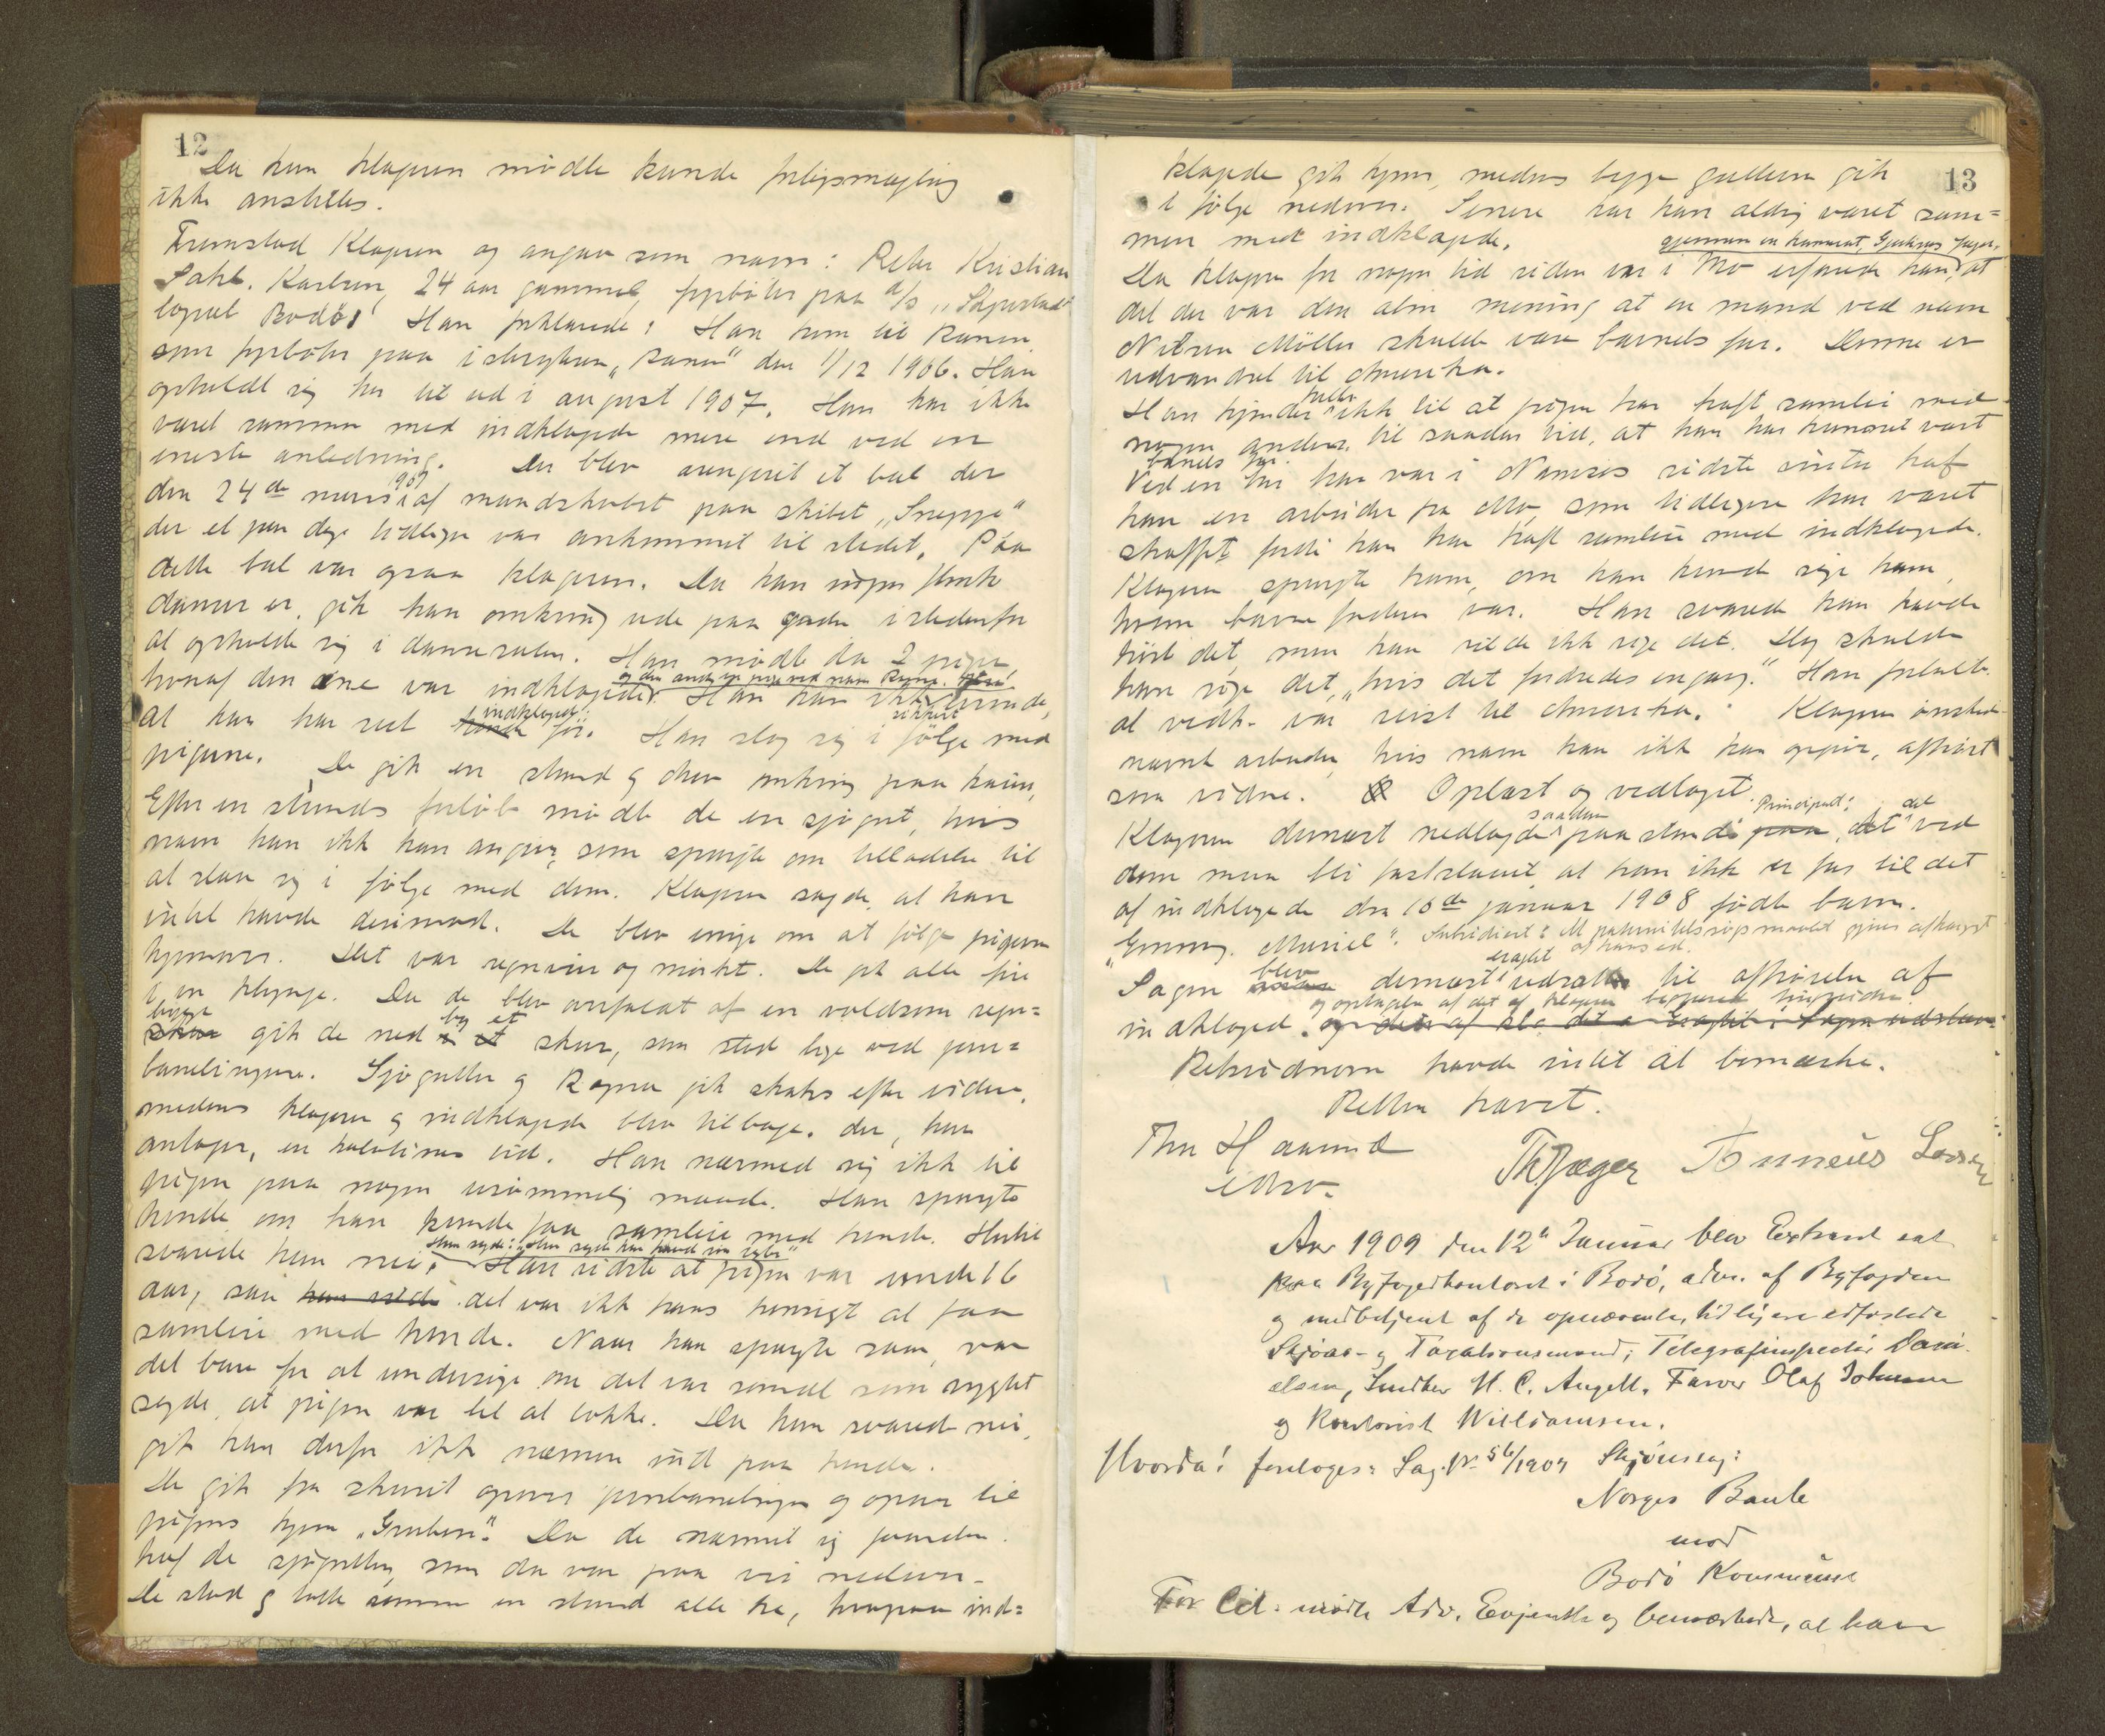 12
Da kun klageren mødte kunde forligsmægling
ikke anstilles.
Fremstod Klageren og angav som navn: Peter Kristian
Dahl. Karlsen, 24 aar gammel, fyrbøter paa d/s "Skjerstad"
Bodø. Han forklarede: Han kom til Ranen
som fyrbøter paa isbryteren "Ranen" den 1/12 1906. Han
opholdt sig her til ud i august 1907. Han har ikke
været sammen med indklagede mere end ved en
eneste anledning. Der blev arrangeret et bal der
den 24de mars 1907 af mandskabet paa skibet "Sneppe"
der et par dage tidligere var ankommet til stedet. Paa
dette bal var ogsaa klageren. Da han nogen
danser er, gik han omkring ude paa gaden istedenfor
at opholde sig i dansesalen. Han mødte da 2 piger,
hvoraf den ene var indklagede og den anden en pige ved navn Ragna. Han kan ikke erindre,
at han har set indklagede før. Han slog sig i følge med
pigerne. De gik en stund og drev omkring paa kaien.
Efter en stunds forløb mødte de en sjøgut, hvis
navn han ikke kan angive, som spurgte om tilladelse til
at slaa sig i følge med dem. Klageren sagde, at han
intet havde derimod. De blev enige om at følge pigerne
hjemover. Det var regnveir og mørkt. De gik alle fire
i en klynge. Da de blev overfaldt af en voldsom regn=
byge gik de ned bag et skur, som stod lige ved jern=
banelinjen. Sjøgutten og Ragna gik straks efter videre,
medens klageren og indklagede blev tilbage der, han
antager, en halvtimes tid. Han nærmed sig ikke til
pigen paa nogen usømmelig maade. Han spurgte
hende om han kunde faa samleie med hende. Hertil
svarede hun nei. Han vidste at pigen var under 16
aar, saa det var ikke hans hensigt at faa
samleie med hende. Naar han spurgte saa, var
det bare for at undersøge om det var sandt som rygtet
sagde, at pigen var let at lokke. Da hun svared nei,
gik han derfor ikke nærmere ind paa hende.
De gik fra skuret opover jernbanelinjen og opover til
pigens hjem "Gruben". Da de nærmet sig
traf de sjøgutten, som da var paa vei nedover.
De stod og talte sammen en stund alle tre, hvorpaa ind=
13
klagede gik hjem, medens begge gutterne gik
i følge nedover. Senere har han aldrig været sam=
men med indklagede.
Da klageren for nogen tid siden var i Mo erfarede han gjennem en kamerat, at
det der var den alm mening at en mand ved navn
Nilsen Møller skulde være barnets far. Denne er
udvandret til Amerika.
Han kjender heller ikke til at pigen har haft samleie med
nogen anden til saadan tid, at han har kunnet vært
barnets far.
Ved en tur han var i Namsos sidste vinter traf
han en arbeider fra Mo, som tidligere har været
straffet, fordi han har haft samleie med indklagede.
Klageren spurgte ham, om han kunde sige ham
hvem barnefaderen var. Han svarede han havde
hørt det, men han vilde ikke sige det. Dog skulde
han sige det, "hvis det fordredes engang." Han fortalte
at vedk. var reist til Amerika. Klageren ønsked
nævnte arbeider, hvis navn han ikke kan opgive, afhørt
som vidne. Oplæst og vedtaget.
Klageren dernæst nedlagde saadan paastand: Principalt: at det ved
dom maa bli fastslaaet at han ikke er far til det
af indklagede den 16de januar 1908 fødte barn.
" Muriel". Subsidiært: At paternitetsspørgsmaalet gjøres afhængigt af hans ed.
Sagen blev dernæst eragtet udsat til afhørelse af
indklagede og optagelse af det af klageren begjærede tingsvidne.
Retsvidnerne havde intet at bemærke.
Retten hævet.
Th Jæger
Aar 1909 den 12te Januar blev Extraret sat
paa Byfogedkontoret i Bodø, adm. af Byfogden
og medbetjent af de opnævnte, tidligere edfæstede
Skjøns- og Taxationsmænd; Telegrafinspektør Dani=
elsen, Snedker H. C. Angell, Farver Olaf Johnsen
og Kontorist Williamsen.
Hvorda! foretoges: Sag No 56/1909 Skjønssag:
Norges Bank
mod
Bodø Kommune
For Cit. mødte Adv. Evjenth og bemærkede, at han